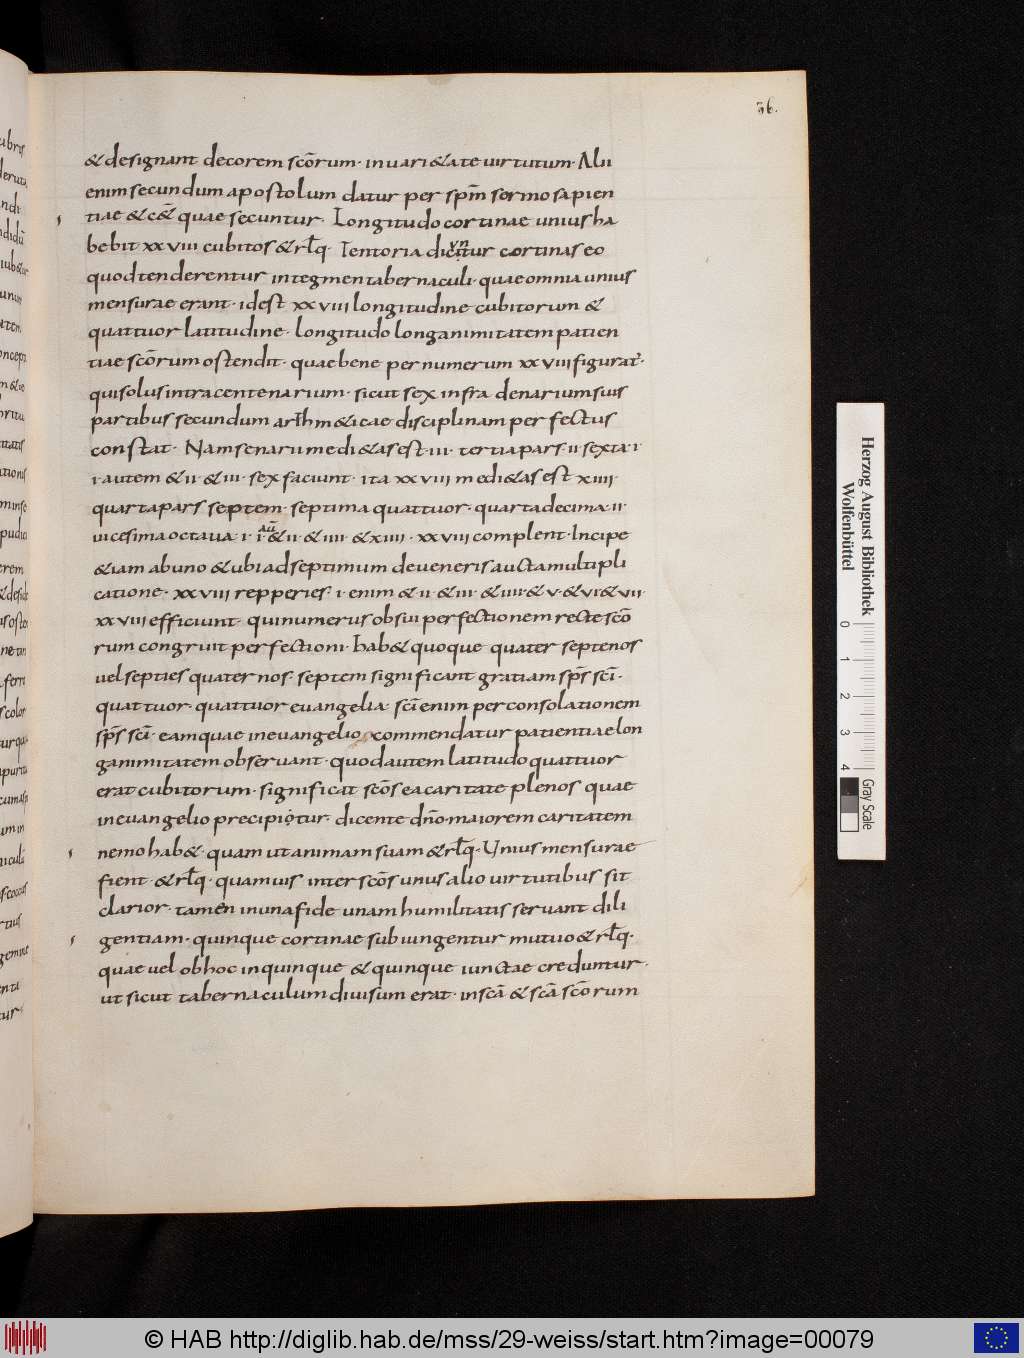 36.
& designant decorem scōrum· inuari&ate uirtutum· Alii
enim secundum apostolum datur per sp̄m sermo sapien
tiae & c&̄ quae secuntur· Longitudo cortinae unius ha
bebit xxviii cubitos & rl̄q· Tentoria dicuntur cortinas eo
quod tenderentur in tegmen tabernaculi· quae omnia unius
mensurae erant· id est xxviii longitudine cubitorum &
quattuor latitudine· longitudo longanimitatem patien
tiae scōrum ostendit· quae bene per numerum xxviii figurat̄·
qui solus intra centenarium· sicut sex infra denarium suis
partibus secundum arithm&icae disciplinam perfectus
constat· Nam senarii medi&as est· iii· tertia pars· ii· sexta· i·
i· autem & ii· & iii· sex faciunt· ita xxviii medi&as est xiiii·
quarta pars septem· septima quattuor· quarta decima· ii·
uicesima octaua· i· i· aū & ii· & iiii· & xiiii· xxviii complent· Incipe
&iam ab uno & ubi ad septimum deueneris aucta multipli
catione· xxviii repperies· i· enim & ii· & iii· & iiii· & v· & vi & vii·
xxviii efficiunt· qui numerus ob sui perfectionem recte scō
rum congruit perfectioni· hab& quoque quater septenos
uel septies quaternos· septem significant gratiam sp̄s sc̄i·
quattuor· quattuor euangelia· sc̄i enim per consolationem
sp̄s sc̄i· eam quae in euangelio commendatur patientiae lon
ganimitatem obseruant· quod autem latitudo quattuor
erat cubitorum· significat scōs ea caritate plenos quae
in euangelio precipiotur· dicente dn̄o· maiorem caritatem
nemo hab&· quam ut animam suam & rl̄q· Unius mensurae
fient· & rl̄q· quamuis inter scōs unus alio uirtutibus sit
clarior· tamen in una fide unam humilitatis seruant dili
gentiam· quinque cortinae sub iungentur mutuo & rl̄q·
quae uel ob hoc in quinque & quinque iunctae creduntur·
ut sicut tabernaculum diuisum erat· in scā & scā scōrum
Herzog August Bibliothek
Wolfenbüttel
0 1 2 3 4
Gray Scale
© HAB http://diglib.hab.de/mss/29-weiss/start.htm?image=00079